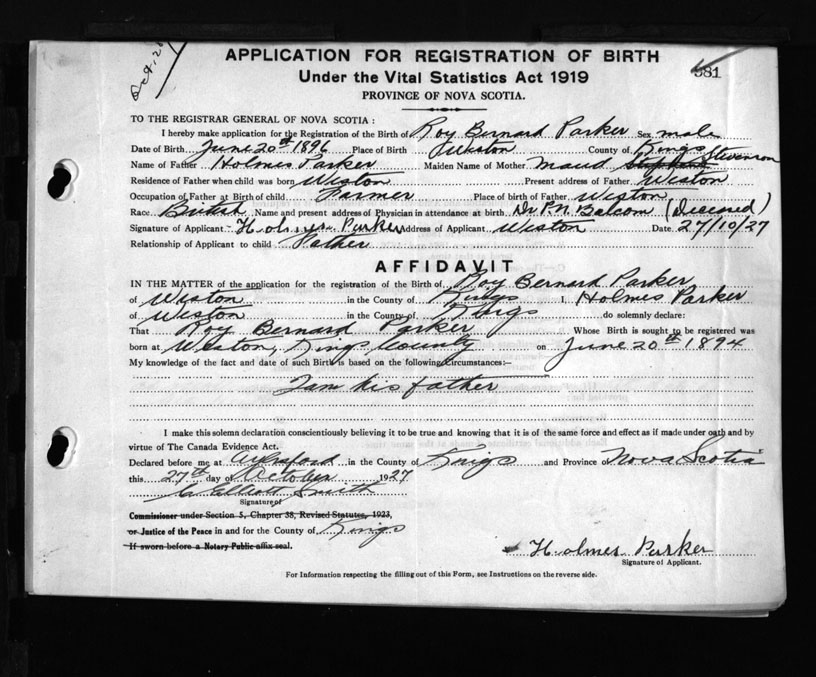 Oct. 28
APPLICATION FOR REGISTRATION OF BIRTH
581
Under the Vital Statistics Act 1919
PROVINCE OF NOVA SCOTIA.
TO THE REGISTRAR GENERAL OF NOVA SCOTIA :
I hereby make application for the Registration of the Birth of Roy Bernard Parker Sex male
Date of Birth June 20th 1896 Place of Birth Weston County of Kings
Name of Father Holmes Parker Maiden Name of Mother Maud Stevenson
Residence of Father when child was born Weston Present address of Father Weston
Occupation of Father at Birth of child Farmer Place of birth of Father Weston
Race British Name and present address of Physician in attendance at birth Dr P.N. Balcom (Deceased)
Signature of Applicant Holmes Parker Address of Applicant Weston Date 27/10/27
Relationship of Applicant to child Father
AFFIDAVIT
IN THE MATTER of the application for the registration of the Birth of Roy Bernard Parker
of Weston in the County of Kings I, Holmes Parker
of Weston in the County of Kings do solemnly declare:
That Roy Bernard Parker Whose Birth is sought to be registered was
born at Weston, Kings County on June 20th 1894
My knowledge of the fact and date of such Birth is based on the following Circumstances:-
I am his father
I make this solemn declaration conscientiously believing it to be true and knowing that it is of the same force and effect as if made under oath and by
virtue of The Canada Evidence Act.
Declared before me at Aylesford in the County of Kings and Province Nova Scotia
this 27th day of October 1927
C. Elliott Smith
Signature of
Commissioner under Section 5, Chapter 38, Revised Statutes, 1923,
or Justice of the Peace in and for the County of Kings
If sworn before a Notary Public affix seal.
Holmes Parker
Signature of Applicant.
For Information respecting the filling out of this Form, see Instructions on the reverse side.